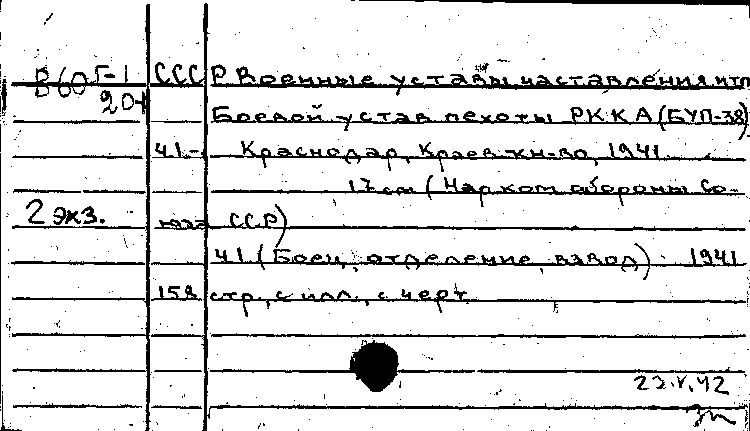 В60 Г-1 СССР Военные уставы, наставления и тп
204
Боевой устав пехоты РККА (БУП-38)
ч.1.- Краснодар, Краев. кн-во, 1941
17 см (Нар. ком. обороны Со-
2 экз. юза ССР)
ч1 (Боец, отделение, взвод) 1941
158 стр., с илл., с черт.
23.V.42